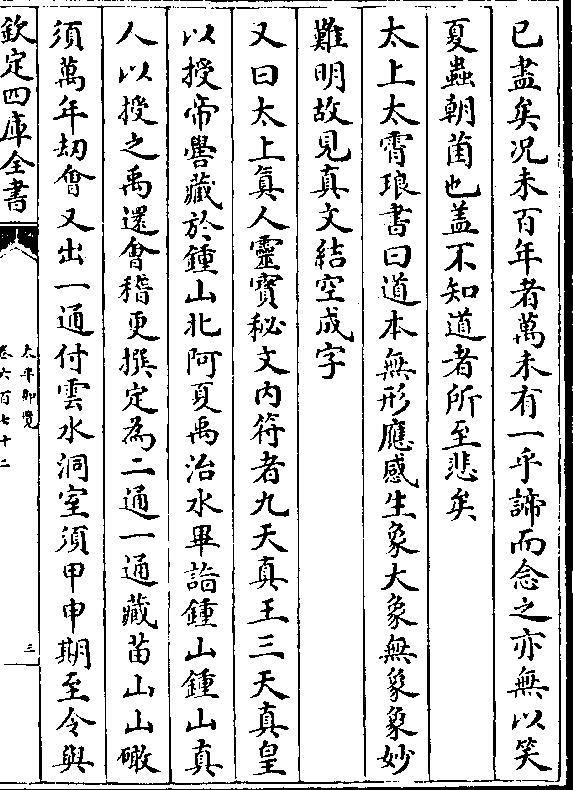 已盡矣况未百年者萬未有一乎諦而念之亦無以笑
夏蟲朝菌也盖不知道者所至悲矣
太上太霄琅書曰道本無形應感生象大象無象象妙
難明故見真文結空成字
又曰太上真人靈寳秘文内符者九天真王三天真皇
以授帝嚳藏於鍾山北阿夏禹治水畢詣鍾山鍾山真
人以授之禹還會稽更撰定為二通一通藏苗山山礅
須萬年劫會又出一通付雲水洞室須甲申期至令與
欽定四庫全書
太平御覽
卷六百七十二
三